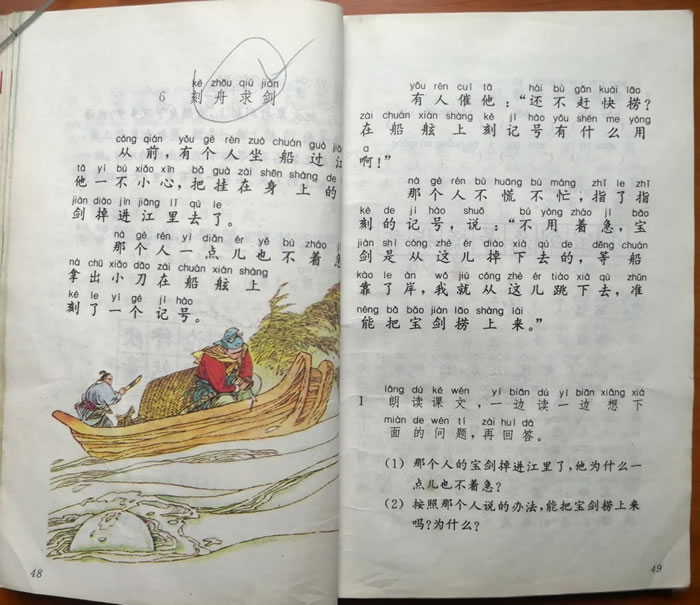 kè zhōu qiú jiàn
6 刻舟求剑
cóng qián yǒu gè rén zuò chuán guò
从前，有个人坐船过江
tā yí bù xiǎo xīn bǎ guà zài shēn shàng de
他一不小心，把挂在身上的
jiàn diào jìn jiāng lǐ qù le
剑掉进江里去了。
nà gè rén yì diǎn ér yě bù zháo
那个人一点儿也不着急
ná chū xiǎo dāo zài chuán xián shàng
拿出小刀在船舷上
kè le yí gè jì hào
刻了一个记号。
48
yǒu rén cuī tā hái bù gǎn kuài lāo
有人催他：“还不赶快捞？
zài chuán xián shàng kè jì hào yǒu shén me yòng
在船舷上刻记号有什么用
a
啊！”
nà gè rén bù huāng bù máng zhǐ le zhǐ
那个人不慌不忙，指了指
kè de jì hào shuō bú yòng zháo jí bǎo
刻的记号，说：“不用着急，宝
jiàn shì cóng zhè ér diào xià qù de děng chuán
剑是从这儿掉下去的，等船
kào le àn wǒ jiù cóng zhè ér tiào xià qù zhǔn
靠了岸，我就从这儿跳下去，准
néng bǎ bǎo jiàn lāo shàng lái
能把宝剑捞上来。”
lǎng dú kè wén yì biān dú yì biān xiǎng xià
1 朗读课文，一边读一边想下
miàn de wèn tí zài huí dá
面的问题，再回答。
(1) 那个人的宝剑掉进江里了，他为什么一
点儿也不着急？
(2) 按照那个人说的办法，能把宝剑捞上来
吗？为什么？
49